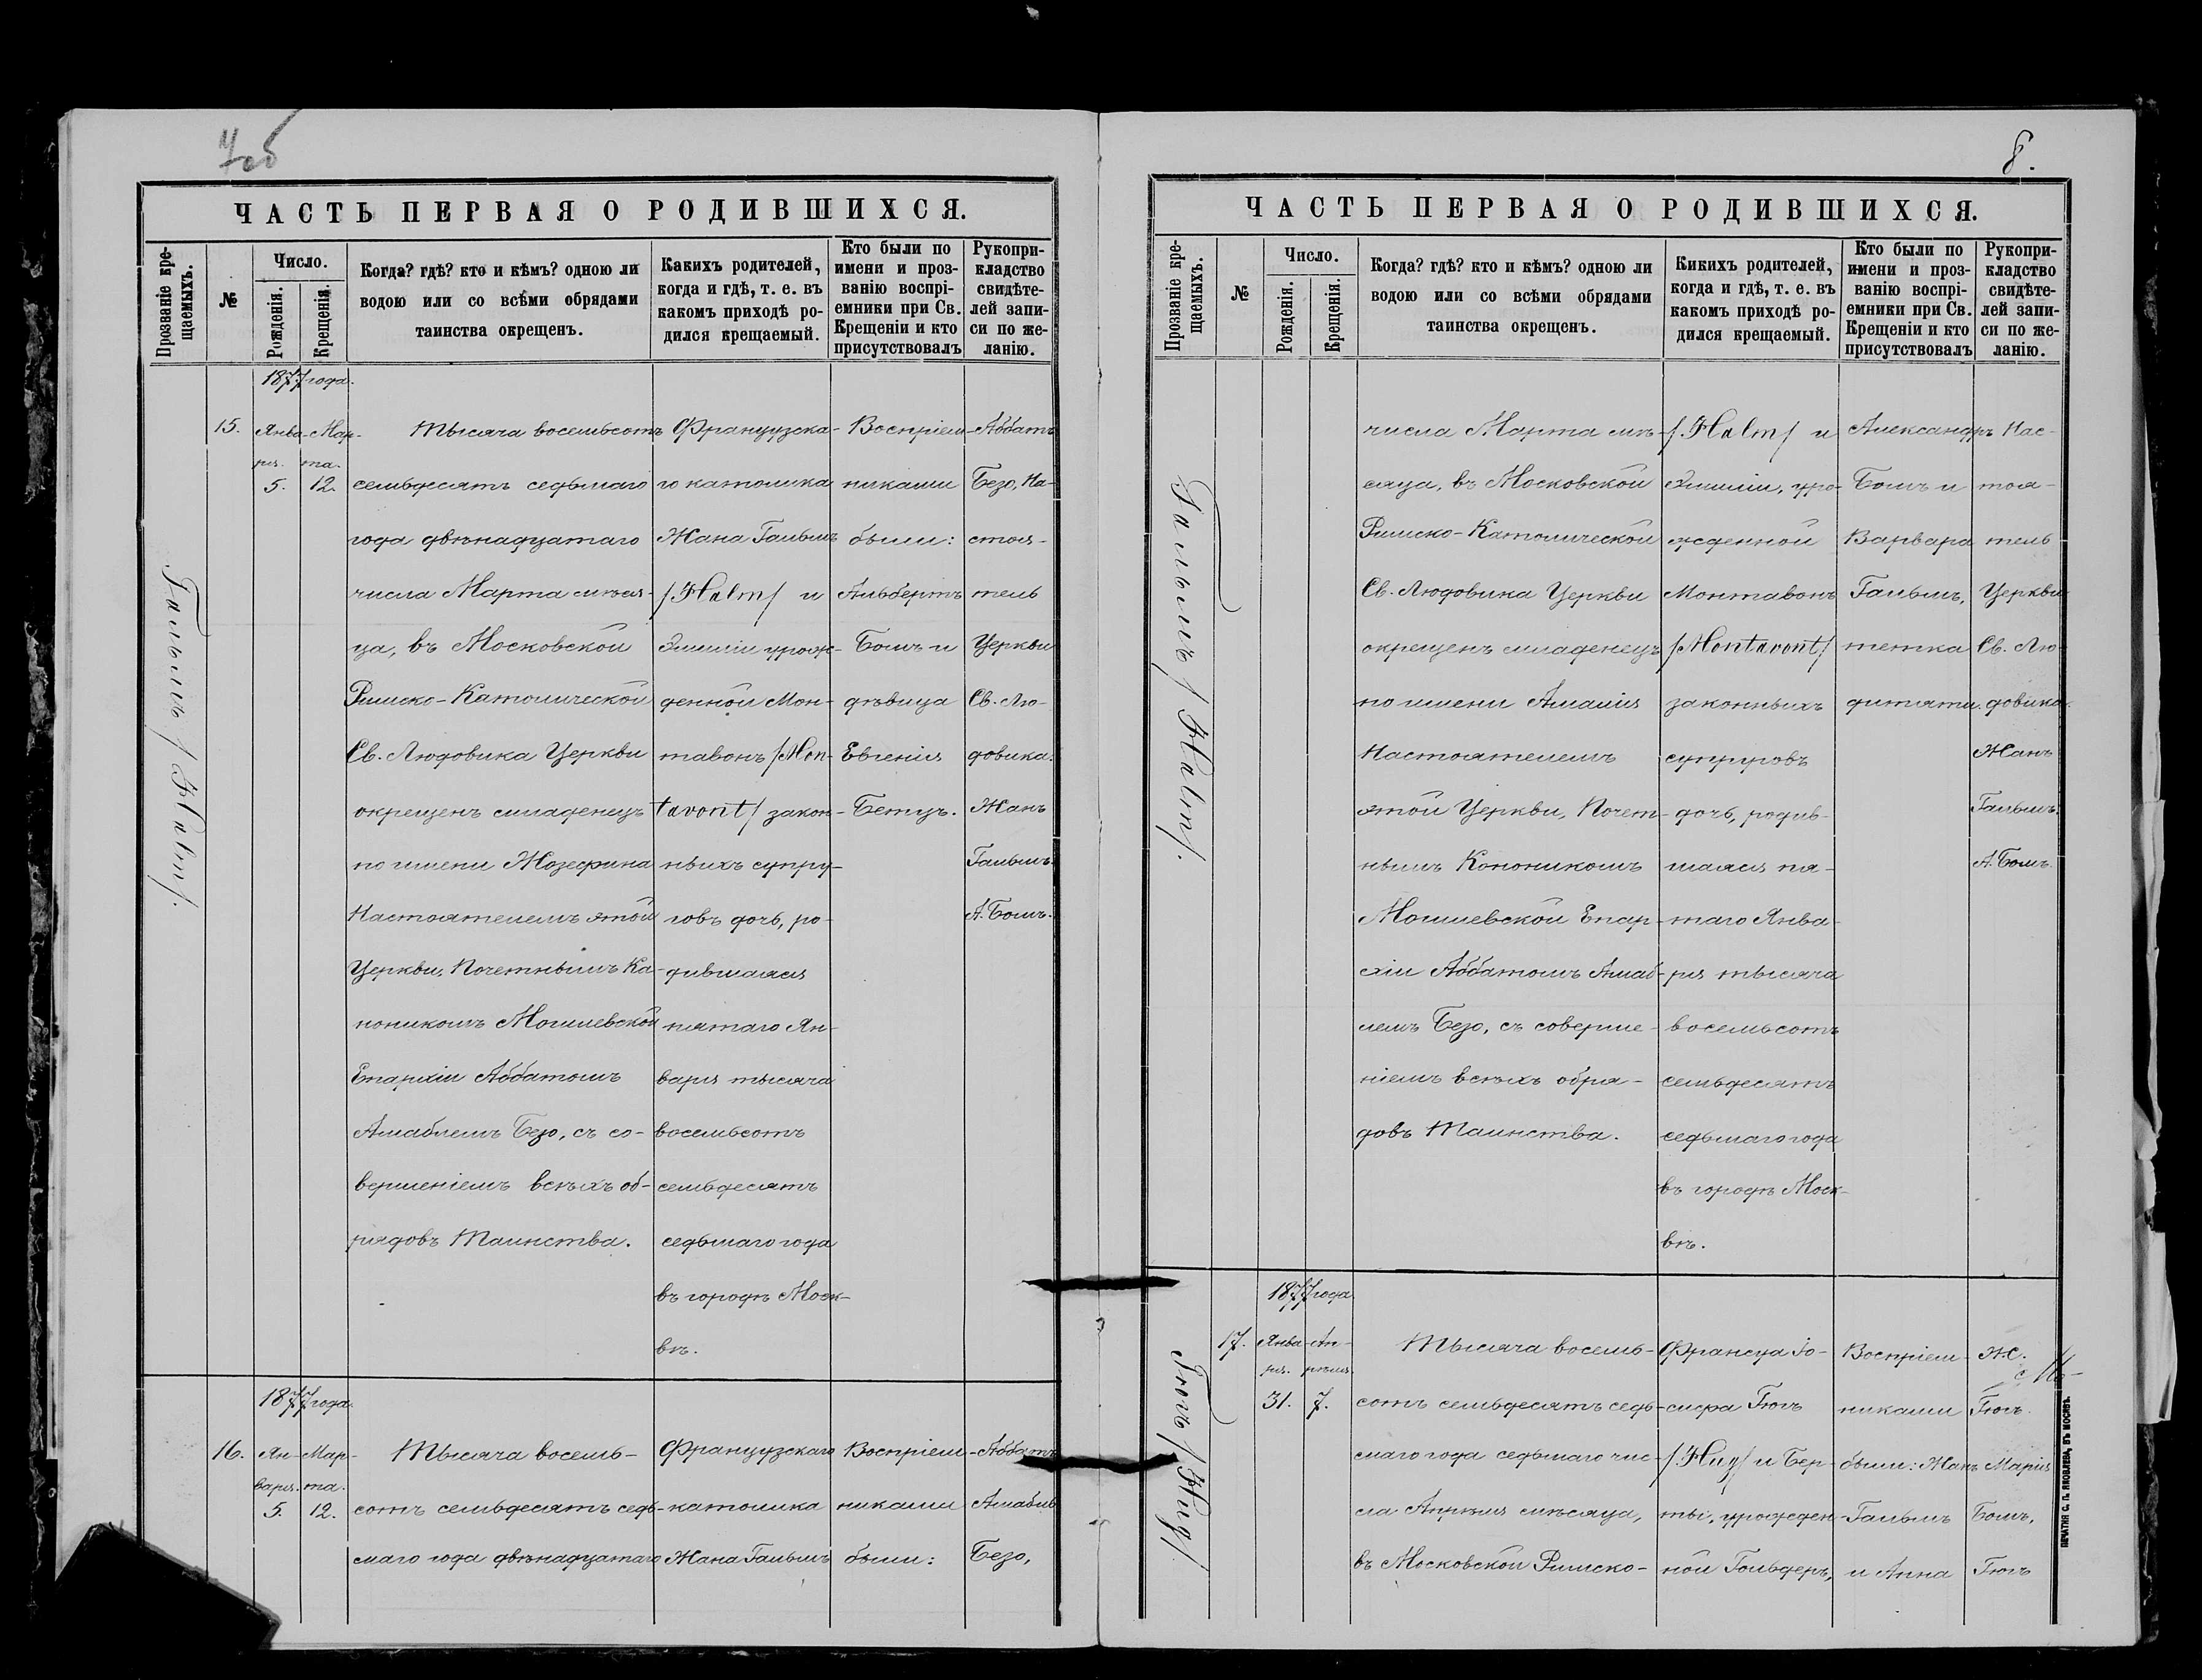 7об
ЧАСТЬ ПЕРВАЯ О РОДИВШИХСЯ.
Прозваніе кре-
щаемыхъ.
№
Число.
Рожденія.
Крещенія.
Когда? гдѣ? кто и кѣмъ? одною ли
водою или со всѣми обрядами
таинства окрещенъ.
Какихъ родителей,
когда и гдѣ, т. е. въ
какомъ приходѣ ро-
дился крещаемый.
Кто были по
имени и проз-
ванію воспрі-
емники при Св.
Крещеніи и кто
присутствовалъ
Рукопри-
кладство
свидѣте-
лей запи-
си по же-
ланію.
Гальмъ / Halm/.
1877 года.
15.
Янва-
ря.
5.
Мар-
та.
12.
Тысяча восемьсотъ
семьдесятъ седьмаго
года двѣнадцатаго
числа Марта мѣся-
ца, въ Московской
Римско-Католической
Св. Людовика Церкви
окрещенъ младенецъ
по имени Жозефина
Настоятелемъ этой
Церкви, Почетнымъ Ка-
ноникомъ Могилевской
Епархіи Аббатомъ
Амаблемъ Безо, съ со-
вершеніемъ всѣхъ об-
рядовъ Таинства.
Французска-
го католика
Жана Гальмъ
/Halm/ и
Эмиліи урож-
денной Мон-
тавонъ /Mon-
tavont/ закон-
ныхъ супру-
говъ дочь, ро-
дившаяся
пятаго Ян-
варя тысяча
восемьсотъ
семьдесятъ
седьмаго года
въ городѣ Моск-
вѣ.
Воспріем-
никами
были:
Альбертъ
Бомъ и
дѣвица
Евгенія
Бетцъ.
Аббатъ
Безо, На-
стоя-
тель
Церкви
Св. Лю-
довика.
Жанъ
Гальмъ.
А. Бомъ.
1877 года.
16.
Ян-
варя.
5.
Мар-
та.
12.
Тысяча восемь-
сотъ семьдесятъ седь-
маго года двѣнадцатаго
Французскаго
католика
Жана Гальмъ
Воспріем-
никами
были:
Аббатъ
Амабль
Безо,
8.
ЧАСТЬ ПЕРВАЯ О РОДИВШИХСЯ.
Прозваніе кре-
щаемыхъ.
№
Число.
Рожденія.
Крещенія.
Когда? гдѣ? кто и кѣмъ? одною ли
водою или со всѣми обрядами
таинства окрещенъ.
Кикихъ родителей,
когда и гдѣ, т. е. въ
какомъ приходѣ ро-
дился крещаемый.
Кто были по
имени и проз-
ванію воспрі-
емники при Св.
Крещеніи и кто
присутствовалъ
Рукопри-
кладство
свидѣте-
лей запи-
си по же-
ланію.
Гальмъ / Halm/.
числа Марта мѣ-
сяца, въ Московской
Римско-Католической
Св. Людовика Церкви
окрещенъ младенецъ
по имени Амалія
Настоятелемъ
этой Церкви, Почет-
нымъ Кононикомъ
Могилевской Епар-
хіи Аббатомъ Амаб-
лемъ Безо, съ соверше-
ніемъ всѣхъ обря-
довъ Таинства.
/Halm/ и
Эмиліи, уро-
жденной
Монтавонъ
/Montavont/
законныхъ
супруговъ
дочь, родив-
шаяся пя-
таго Янва-
ря тысяча
восемьсотъ
семьдесятъ
седьмаго года
въ городѣ Моск-
вѣ.
Александръ
Бомъ и
Варвара
Гальмъ,
тетка
дитяти.
Нас-
тоя-
тель
Церкви
Св. Лю-
довика.
Жанъ
Гальмъ.
А. Бомъ.
Гюгъ / Hug/.
1877 года.
17.
Янва-
ря.
31.
Ап-
рѣля.
7.
Тысяча восемь-
сотъ семьдесятъ седь-
маго года седьмаго чис-
ла Апрѣля мѣсяца,
въ Московской Римско-
Француа Іо-
сифа Гюгъ
/Hug/ и Бер-
ты, урожден-
ной Гольдеръ,
Воспріем-
никами
были: Жанъ
Гальмъ
и Анна
Ж.
Гюгъ.
Марія
Бомъ,
Гюгъ
ПЕЧАТНЯ С. П. ЯКОВЛЕВА, ВЪ МОСКВѢ.